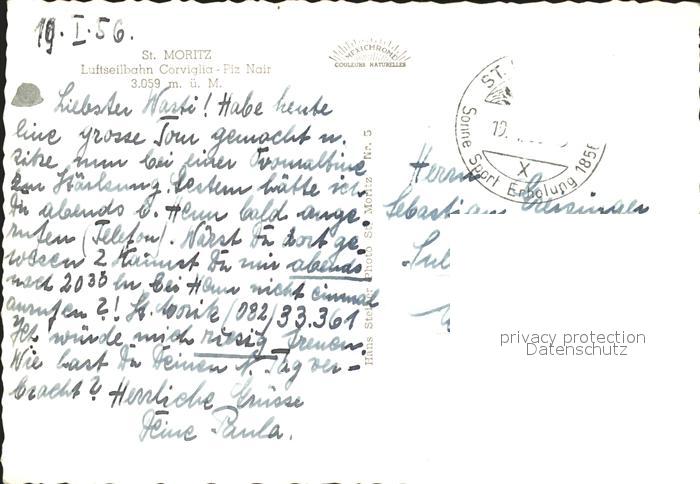 19. I. 56.
St. MORITZ
Luftseilbahn Corviglia - Piz Nair
3.059 m. ü. M.
MEXICHROME
COULEURS NATURELLES
Liebster Wasti! Habe heute
eine grosse Tour gemacht u.
sitze nun bei einer Ovomaltine
zur Stärkung. Gestern hätte ich
Du abends b. Henn bald ange-
rufen (Telefon). Wärst Du dort ge-
wesen? Kannst Du mir abends
nach 20 30 h bei Henn nicht einmal
anrufen?! St. Moritz (082) 33.361
Ich würde mich riesig freuen.
Wie hast Du Deinen N. Tag ver-
bracht? Herzliche Grüsse
Deine Paula.
Photo St. Moritz Nr. 5
ST.
19.
X
Sonne Sport Erholung 1856
Herrn
Sebastian
privacy protection
Datenschutz